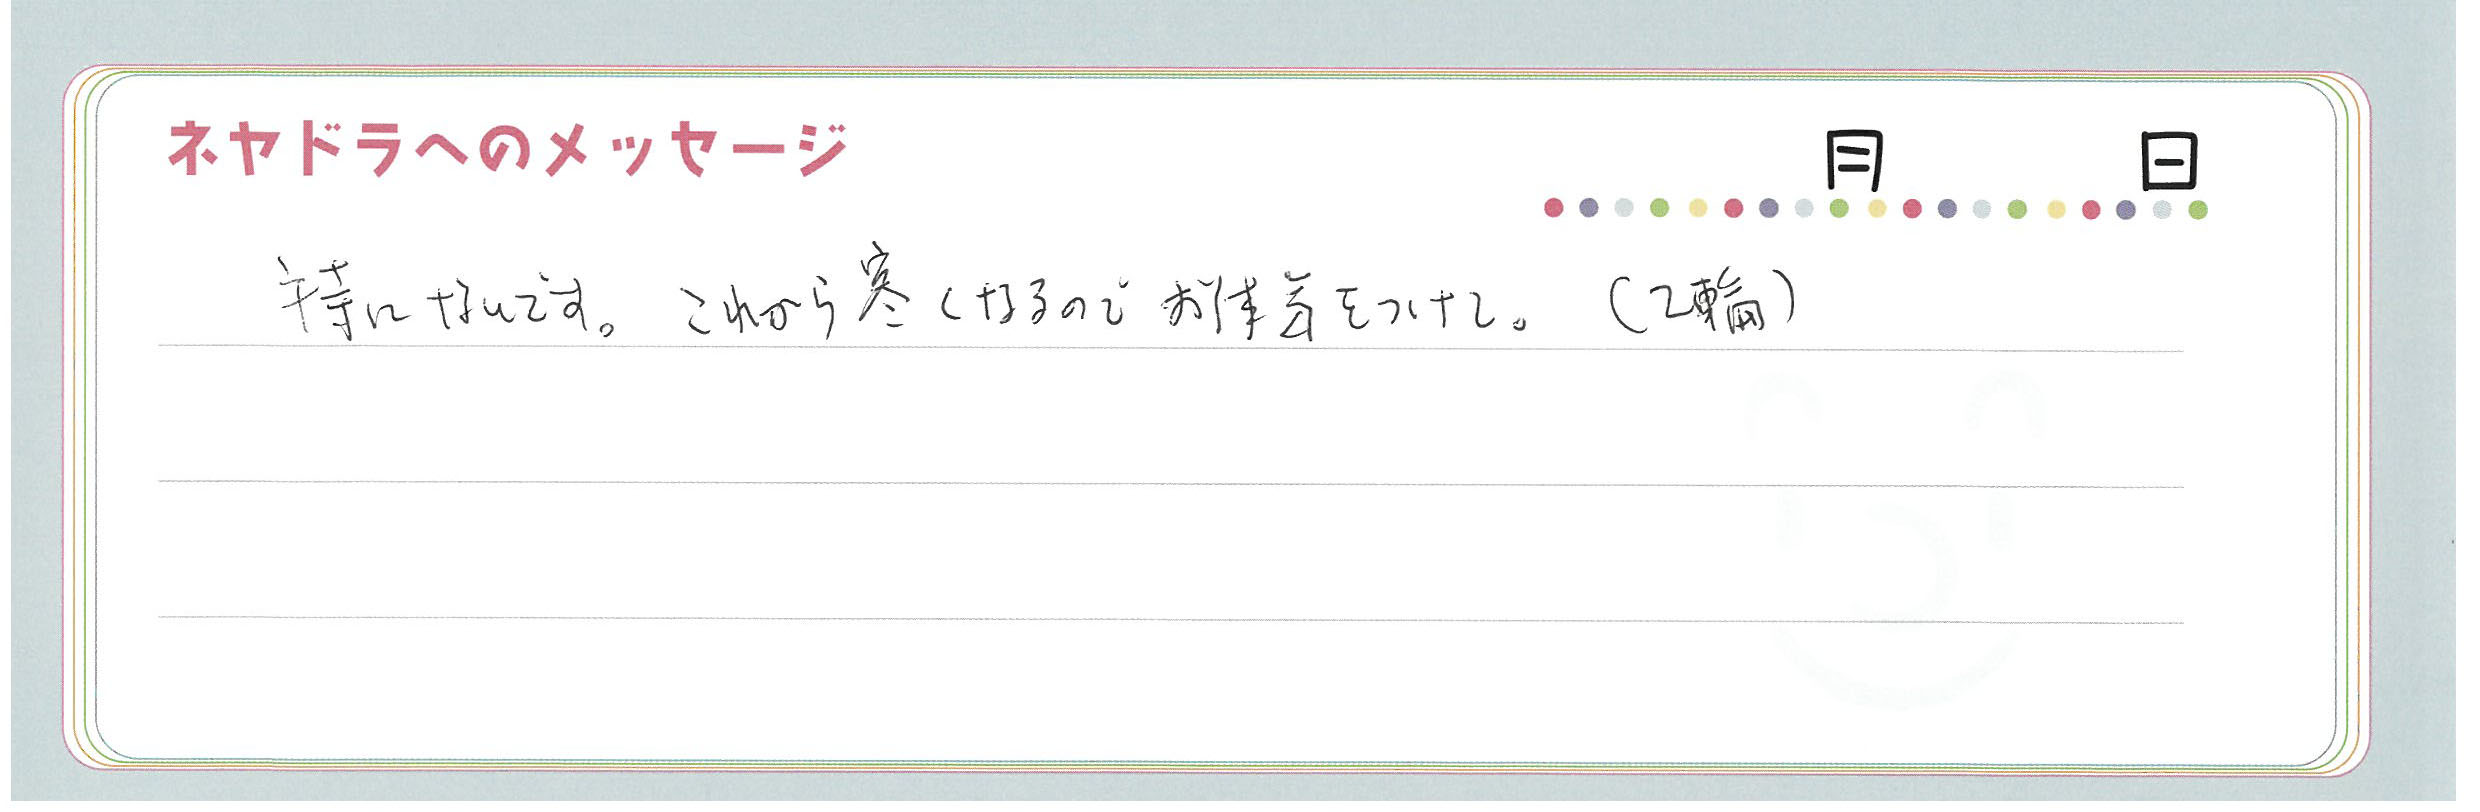 ネヤドラへのメッセージ
月 日
特にないです。これから寒くなるのでお体気をつけて。(2輪)